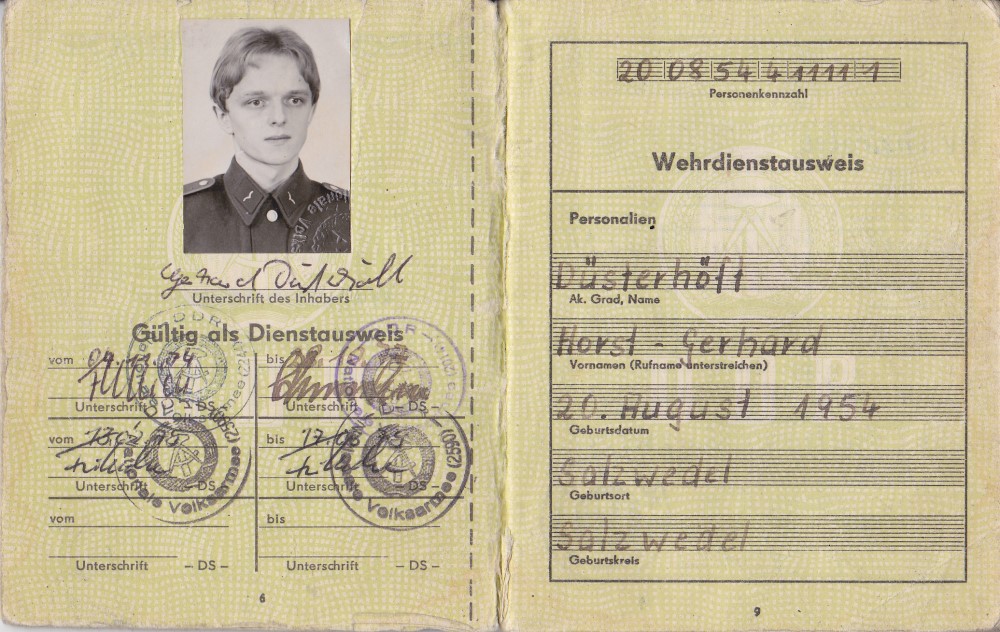 Unterschrift des Inhabers
Gültig als Dienstausweis
vom 04.11.74 bis
Unterschrift – DS – Unterschrift – DS –
vom bis
Unterschrift – DS – Unterschrift – DS –
vom bis
Unterschrift – DS – Unterschrift – DS –
6
Nationale Volksarmee
20 08 54 4 1111 1
Personenkennzahl
Wehrdienstausweis
Personalien
Düsterhöft
Ak. Grad, Name
Horst - Gerhard
Vornamen (Rufname unterstreichen)
20. August 1954
Geburtsdatum
Salzwedel
Geburtsort
Salzwedel
Geburtskreis
9